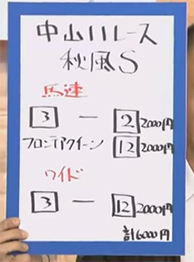 中山11レース
秋風S
馬連
3 ー 2 2000円
フロンティアクイーン 12 2000円
ワイド
3 ー 12 2000円
計6000円